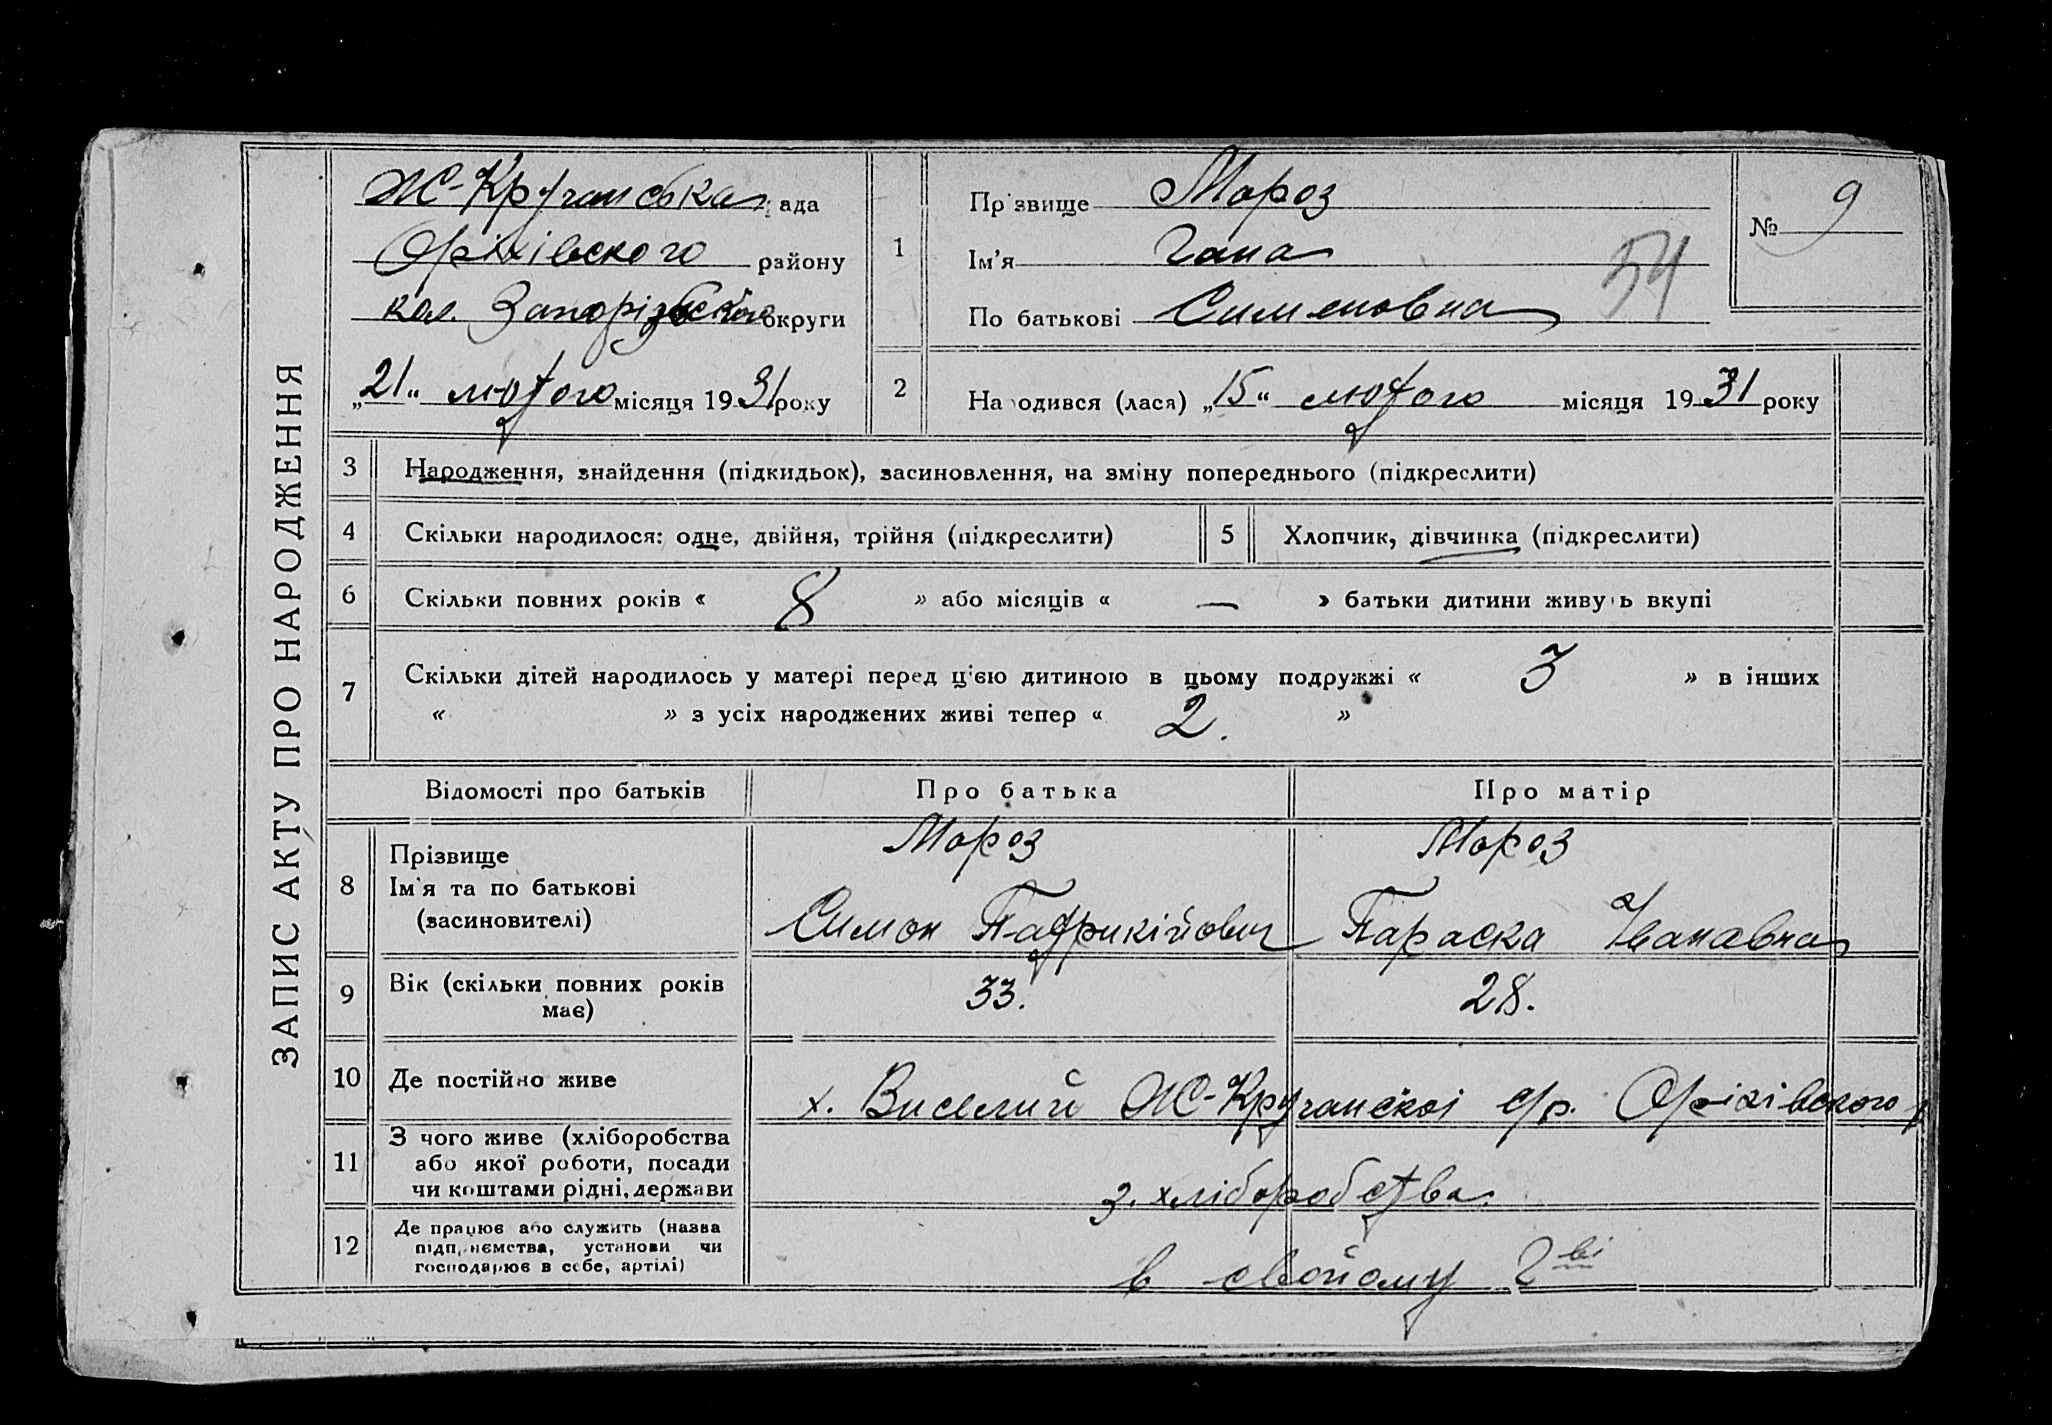 ЗАПИС АКТУ ПРО НАРОДЖЕННЯ
Ж-Кручанська рада
Оріхівского району
кол. Запорізької округи
„21“ лютого місяця 1931 року
1
Прізвище Мороз
Ім'я Гана
По батькові Симоновна
54
№ 9
2
Народився (лася) „15“ лютого місяця 1931 року
3 Народження, знайдення (підкидьок), засиновлення, на зміну попереднього (підкреслити)
4 Скільки народилося: одне, двійня, трійня (підкреслити)
5 Хлопчик, дівчинка (підкреслити)
6 Скільки повних років « 8 » або місяців « — » батьки дитини живуть вкупі
7 Скільки дітей народилось у матері перед ц'єю дитиною в цьому подружжі « 3 » в інших
« » з усіх народжених живі тепер « 2. »
Відомості про батьків Про батька Про матір
8 Прізвище
Ім'я та по батькові
(засновителі)
Мороз
Симон Патрикійович
Мороз
Параска Івановна
9 Вік (скільки повних років
має)
33. 28.
10 Де постійно живе
х. Виселий Ж-Кручанскої с/р. Оріхівского р
11 З чого живе (хліборобства
або якої роботи, посади
чи коштами рідні, держави
з. хліборобства
12 Де працює або служить (назва
підприємства, установи чи
господарює в себе, артілі)
в свойому г-ві